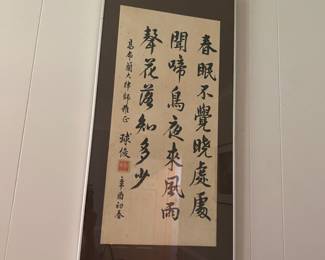 春眠不覺曉處處
聞啼鳥夜來風雨
聲花落知多少
高布蘭大律師雅正
球俊
辛酉初春